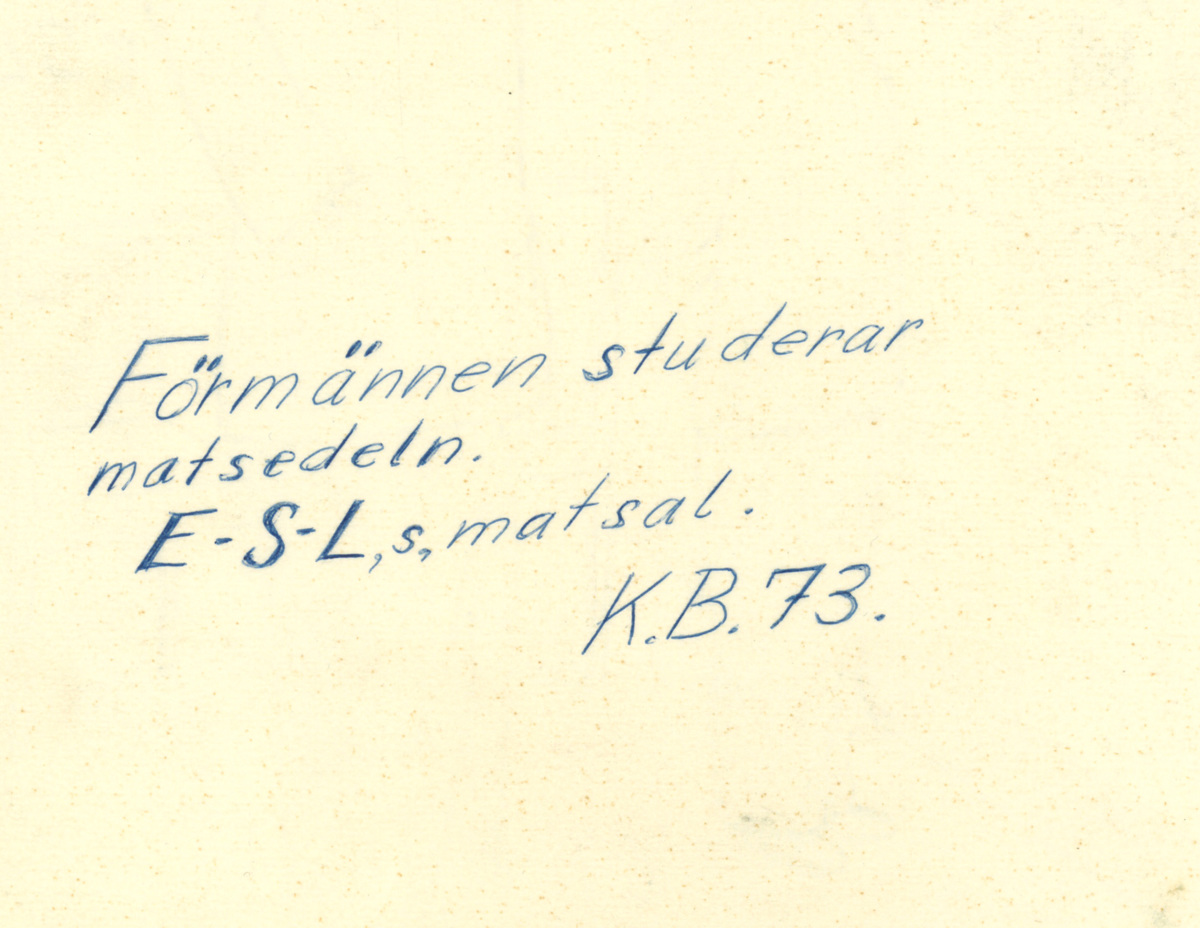 Förmännen studerar
matsedeln.
E-S-L,s, matsal.
K.B. 73.